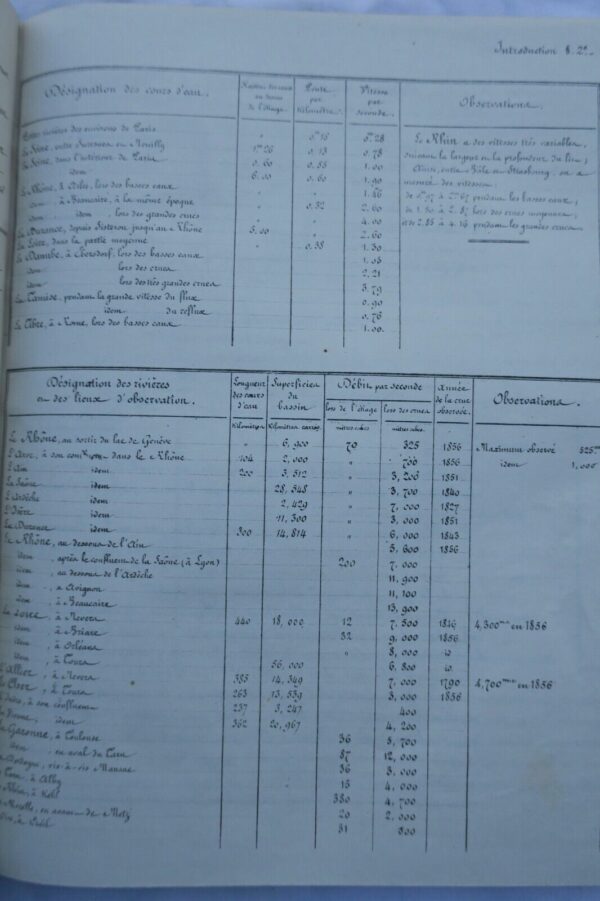 Introduction § 2e
Désignation des cours d'eau. Pente par kilomètre. Vitesse par seconde. Observations.
rivières des environs de Paris " 0.15 0m28
Seine, entre Suresnes et Neuilly 1m26 0.13 0.78
Seine, dans l'intérieur de Paris 0.60 0.55 1.00
idem 6.00 0.60 1.90
Le Rhône, à Arles, lors des basses eaux
à Beaucaire, à la même époque 0.32 2.60
idem lors des grandes crues 4.00
La Durance, depuis Sisteron jusqu'au Rhône 5.00 2.60
La Loire, dans la partie moyenne " 0.38 1.30
Le Danube, à Ebersdorf, lors des basses eaux
idem lors des crues 2.21
idem lors des très grandes crues 3.79
La Tamise, pendant la grande vitesse du flux 0.90
idem du reflux 0.76
Le Tibre, à Rome, lors des basses eaux 1.00
Le Rhin a des vitesses très variables,
suivant la largeur et la profondeur du lit;
Ainsi, entre Bâle et Strasbourg, on a
mesuré des vitesses:
pendant les basses eaux;
lors des crues moyennes;
et 2.85 à 4.16 pendant les grandes crues
Désignation des rivières et des lieux d'observation. Longueur des cours d'eau Superficie du bassin Débit par seconde Année de la crue observée. Observations.
lors de l'étiage lors des crues
Kilomètres Kilomètres carrés mètres cubes mètres cubes.
Le Rhône, au sortir du lac de Genève " 6,900 70 525 1856 Maximum observé
L'Arve, à son dans le Rhône 104 2,000 " 700 1856 idem 1,000
L'Ain idem 200 3,512 " 1851
La Saône idem 28,548 " 3,700 1840
L'Ardèche idem 2,429 " 7,000 1827
L'Isère idem 11,300 " 3,000 1851
La Durance idem 300 14,814 " 6,000 1843
Le Rhône, au dessous de l'Ain 5,600 1856
idem, après le confluent de la Saône (à Lyon) 200 7,000
idem, au dessous de l'Ardèche 11,900
idem, à Avignon 11,100
idem, à Beaucaire 13,900
La Loire, à Nevers 440 18,000 12 7,500 4,300 en 1856
idem, à Briare 32 9,000 1856
idem, à Orléans " 8,000 id
idem, à Tours 56,000 6,800 id
L'Allier, à Nevers 385 14,349 7,000 1790 4,700 en 1856
Le Cher, à Tours 263 13,539 3,000 1856
à son confluent 237 3,247 400
Vienne, idem 362 20,967 4,200
La Garonne, à Toulouse 36 5,700
idem, en aval du Tarn 87 12,000
Dordogne, vis-à-vis 36 3,000
Tarn, à Alby 15 4,000
Rhin, à Kehl 380 4,700
Moselle, en amont de Metz 20 2,000
à Creil 31 800